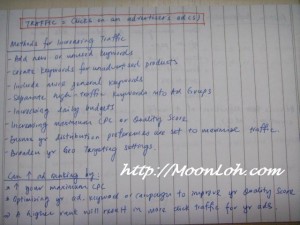 TRAFFIC = Clicks on an advertiser's ad(s)
Methods for Increasing Traffic
- Add new or unused keywords
- create keywords for unadvertised products
- Include more general keywords
- Separate high-traffic keywords into Ad Groups
- Increasing daily budgets
- Increasing maximum CPC or Quality Score
- Ensure yr distribution preferences are set to maximise traffic
- Broaden yr Geo Targeting settings.
http://MoonLoh.com
Can ↑ ad ranking by:
* ↑ your maximum CPC
* Optimising yr ad, keyword or campaign to improve yr Quality Score
* A higher rank will result in more such traffic for yr ads.